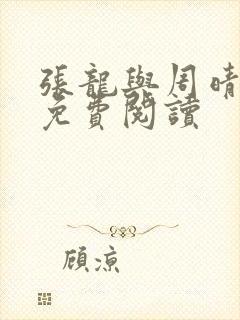 張龍與周晴
免費閱讀
顾凉